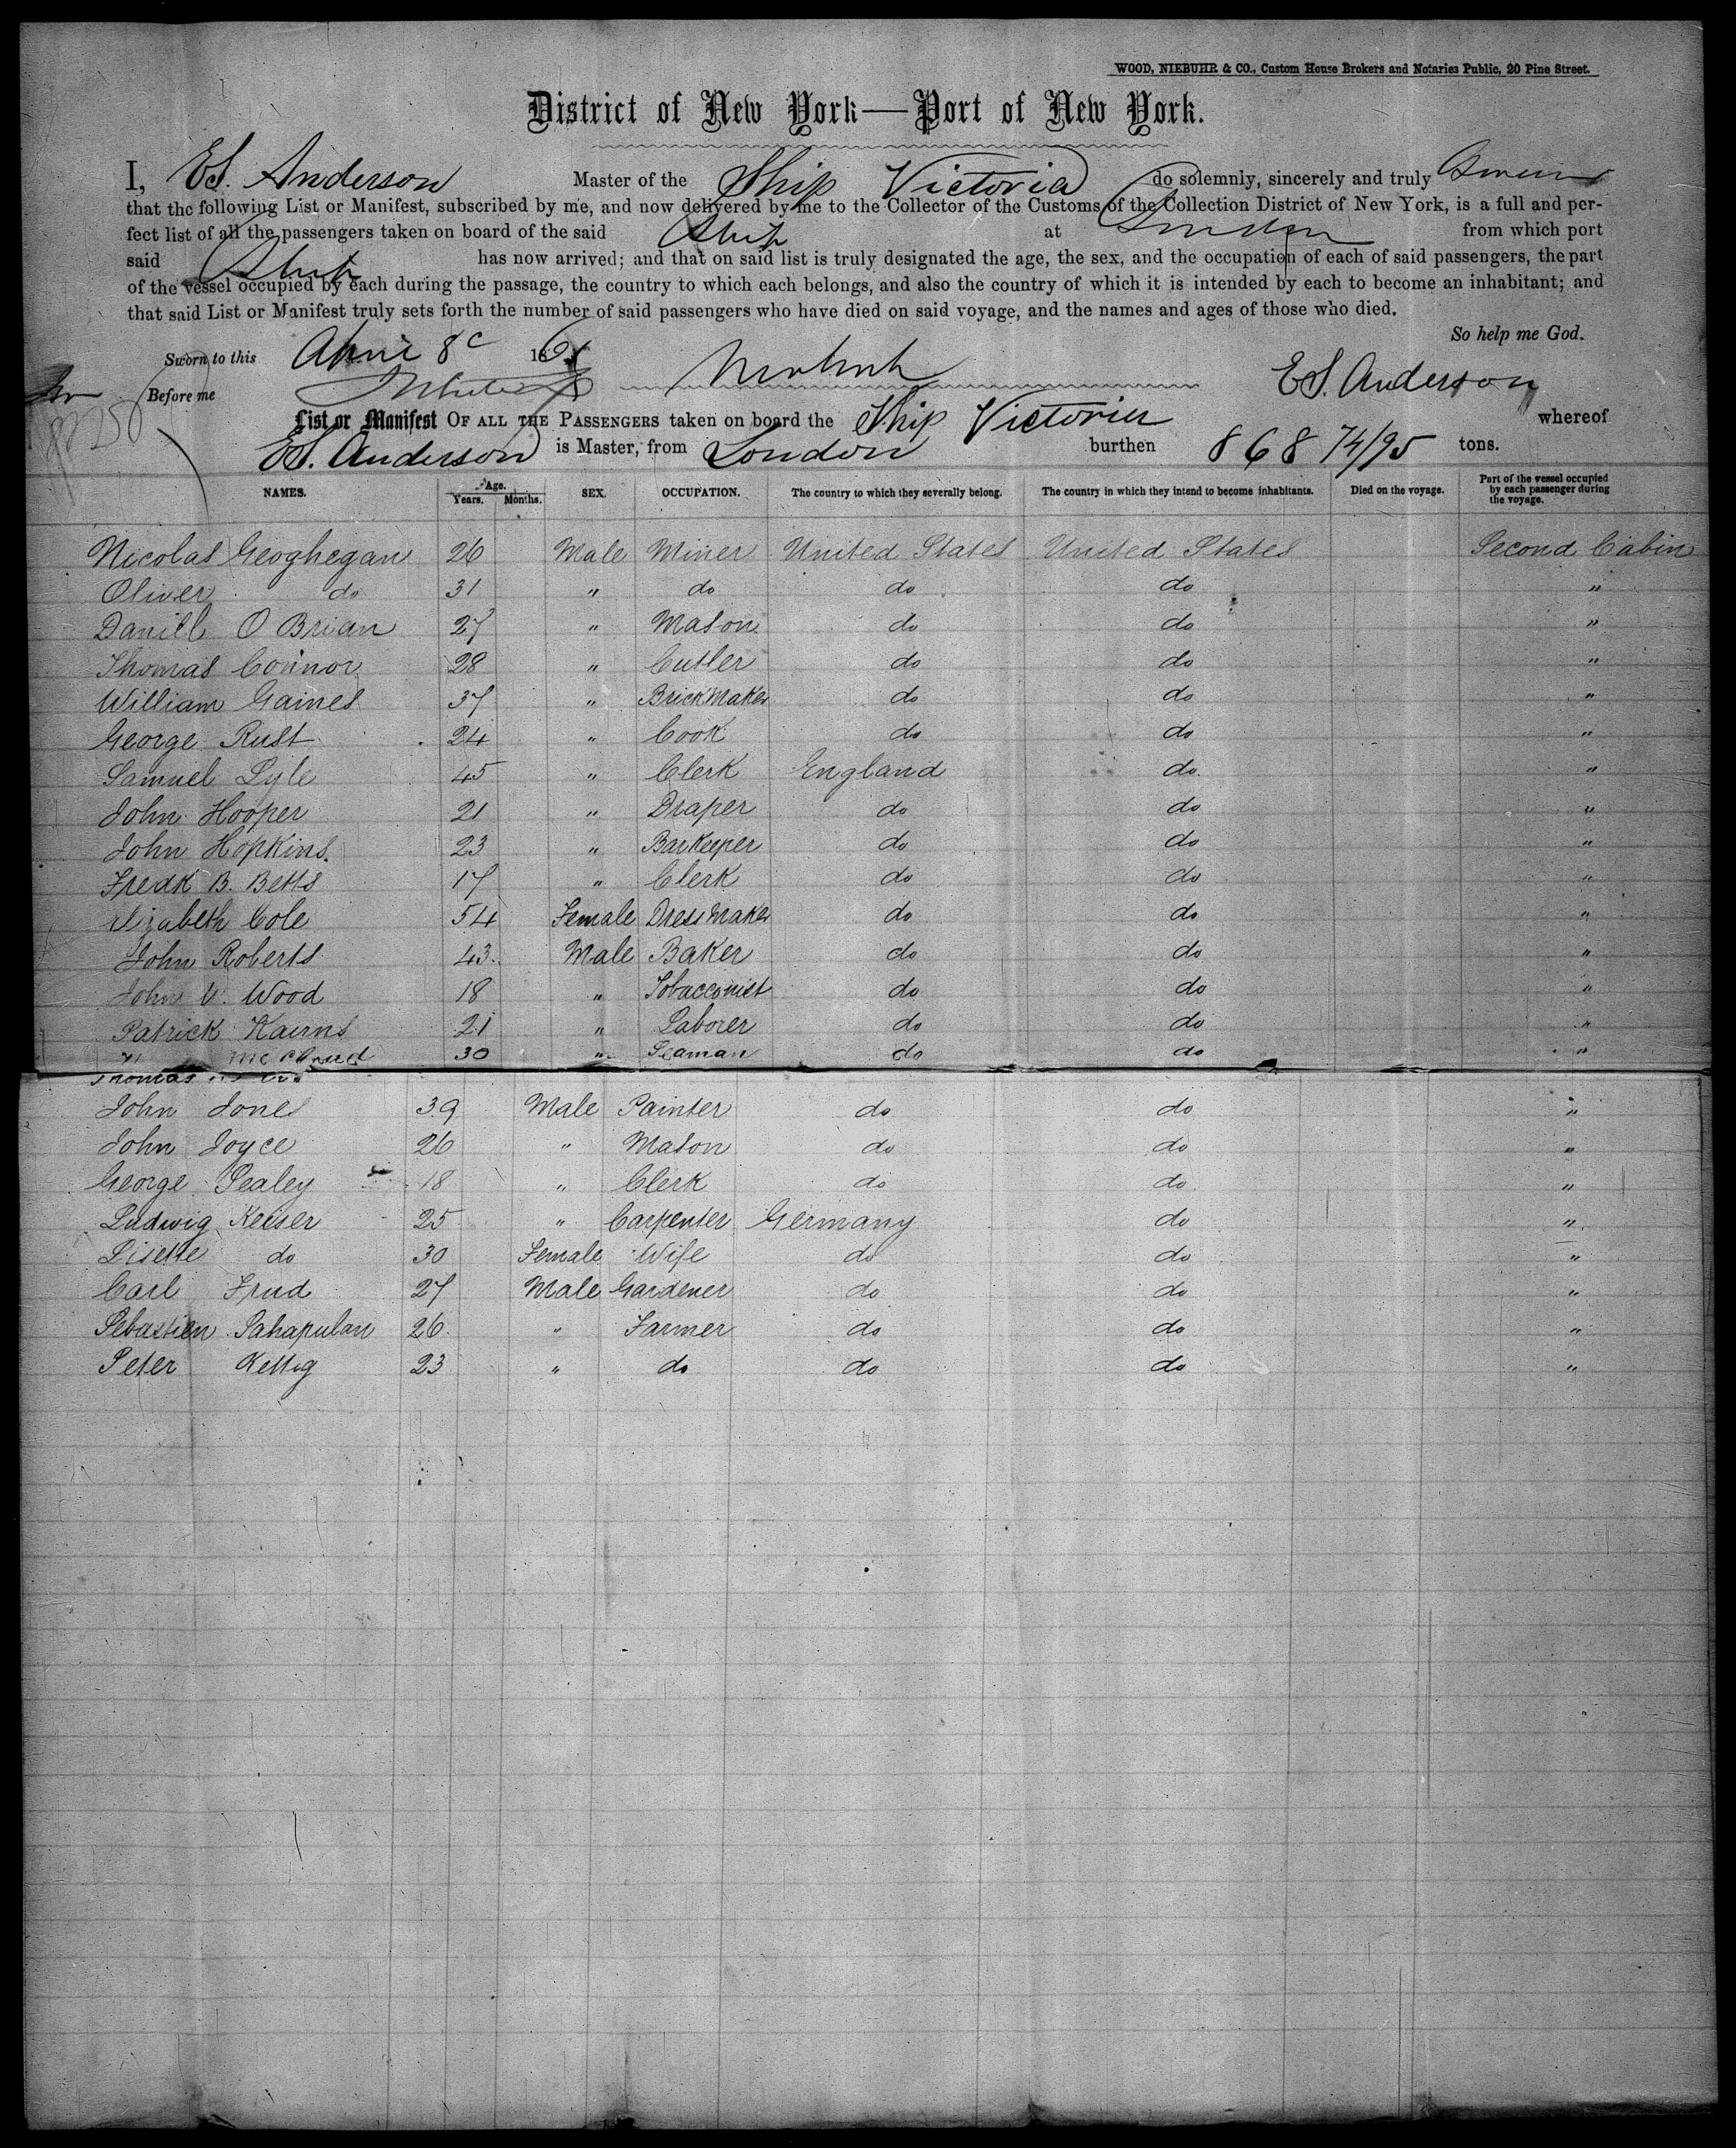 WOOD, NIEBUHR & CO., Custom House Brokers and Notaries Public, 20 Pine Street.
District of New York—Port of New York.
I, ES. Anderson Master of the Ship Victoria do solemnly, sincerely and truly Swear
that the following List or Manifest, subscribed by me, and now delivered by me to the Collector of the Customs of the Collection District of New York, is a full and per-
fect list of all the passengers taken on board of the said Ship at London from which port
said Ship has now arrived; and that on said list is truly designated the age, the sex, and the occupation of each of said passengers, the part
of the vessel occupied by each during the passage, the country to which each belongs, and also the country of which it is intended by each to become an inhabitant; and
that said List or Manifest truly sets forth the number of said passengers who have died on said voyage, and the names and ages of those who died.
So help me God.
Sworn to this April 8 186
Before me ES. Anderson
List or Manifest OF ALL THE PASSENGERS taken on board the Ship Victoria whereof
ES. Anderson is Master, from London burthen 868 74/95 tons.
NAMES. Age. Years. Months. SEX. OCCUPATION. The country to which they severally belong. The country in which they intend to become inhabitants. Died on the voyage. Part of the vessel occupied by each passenger during the voyage.
Nicolas Geoghegan 26 Male Miner United States United States Second Cabin
Oliver do 31 " do do do "
Daniel O Brian 27 " Mason do do "
Thomas Connor 28 " Cutler do do "
William Gaines 37 " BrickMaker do do "
George Rust 24 " Cook do do "
Samuel Lyle 45 " Clerk England do "
John Hooper 21 " Draper do do "
John Hopkins. 23 " BarKeeper do do "
Fredk B. Betts 17 " Clerk do do "
Elizabeth Cole 54 Female DressMaker do do "
John Roberts 43 Male Baker do do "
John W. Wood 18 " Tobacconist do do "
Patrick Kairns 21 " Laborer do do "
Thomas 30 " Seaman do do "
John Jones 39 Male Painter do do "
John Joyce 26 " Mason do do "
George Sealey 18 " Clerk do do "
Ludwig Keiser 25 " Carpenter Germany do "
Lisette do 30 Female Wife do do "
Carl Frud 27 Male Gardener do do "
Sebastien Sahapulan 26 " Farmer do do "
Peter Kettig 23 " do do do "